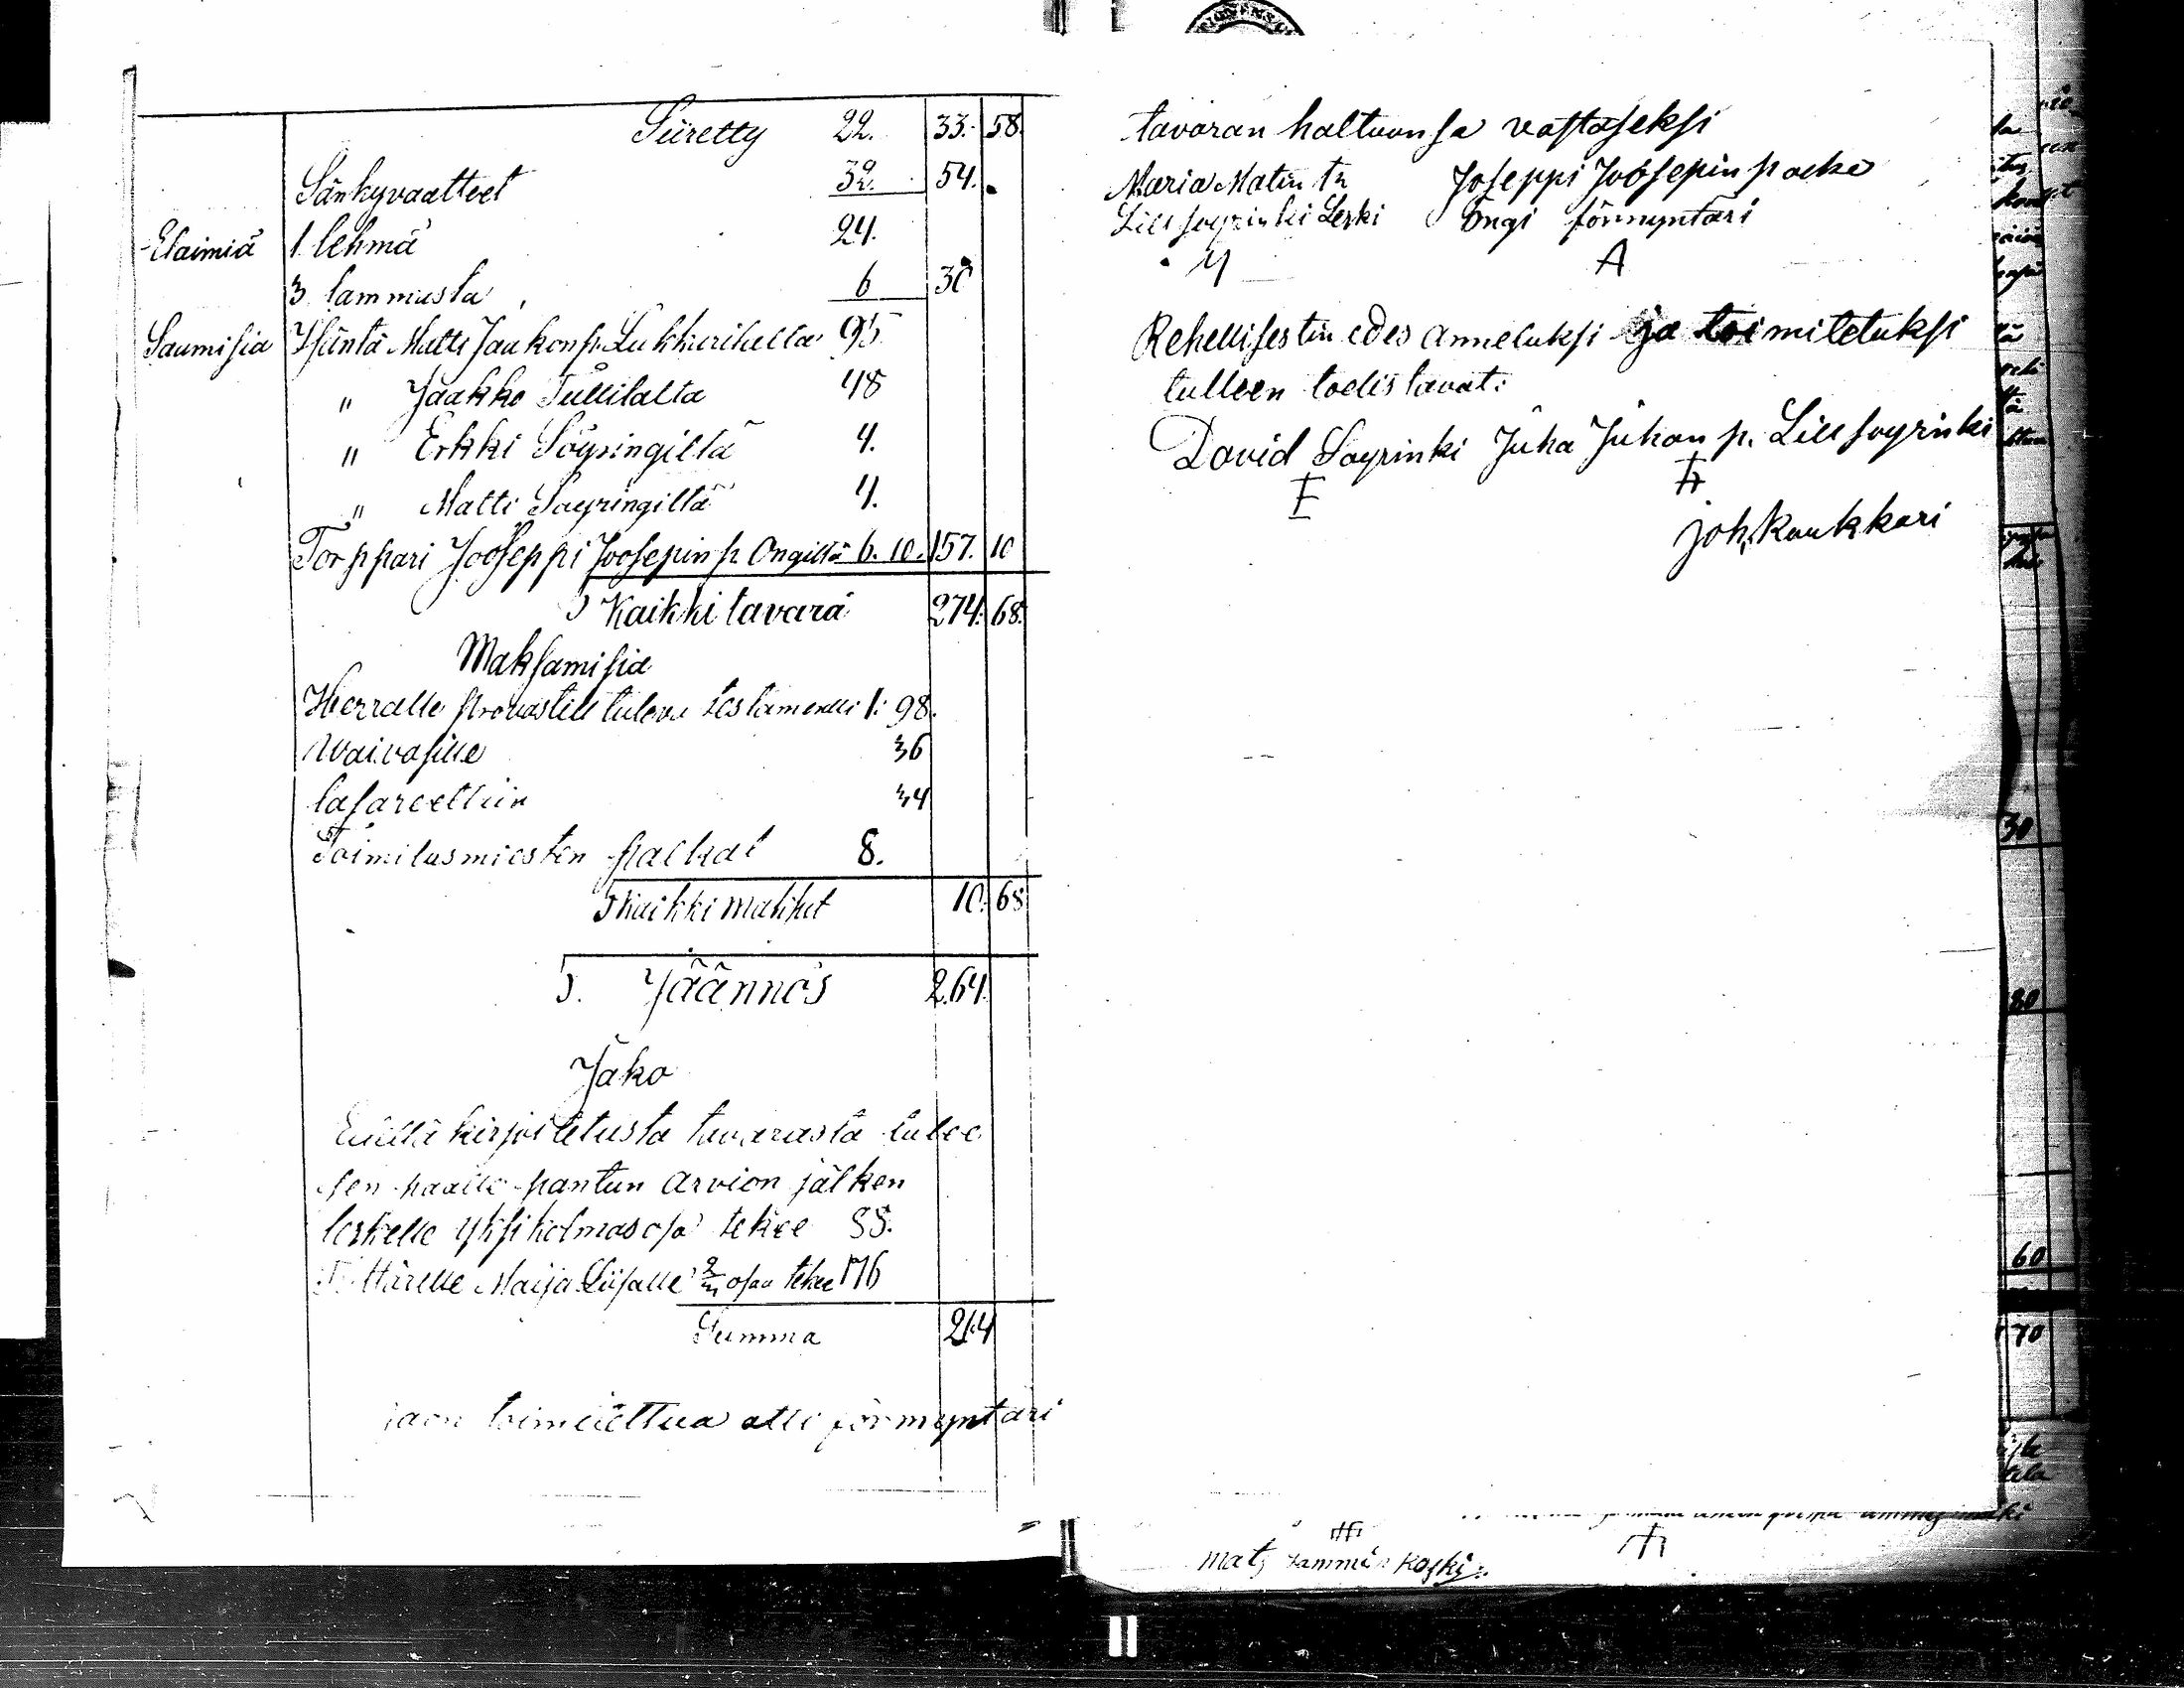 Siiretty 22. 33. 58.
Sänkyvaatteet 32. 54.
Elaimiä 1 lehmä 24.
3 lammasta 6 30
Saamisia Isäntä Matti Jaakonp. Lukkarihella 95
" Jaakko Tullilalta 48
" Erkki Söyringiltä 4.
" Matti Söyringiltä 4.
Torppari Jooseppi Joosepin p. Ongiltä 6.10. 157. 10
S Kaikki tavara 274. 68.
Maksamisia
Herralle provastille tuleva testamentti 1: 98.
Waivasille 36
lasareettiin 34
Toimitusmiesten palkat 8.
S Kaikki makset 10. 68
S. Jäännös 264.
Jako
Edellä kirjoitetusta tavarasta tulee
sen päälle pantun arvion jälken
leskelle yksi kolmas osa tekee 88.
Tyttärelle Maija Liisalle 2/3 osaa tekee 176
Summa 264
jaon toimitettua otti förmyntäri
tavaran haltuunsa vastaseksi
Maria Matin tr Joseppi Joosepin poeka
Lillsoyrinki Leski Ongi förmyntäri
M A
Rehellisestin edes annetuksi ja toimitetuksi
tulleen todistavat:
David Soyrinki Juha Juhan p. Lillsoyrinki
joh. Kaukkari
30
80
60
70
mats tammin koski.